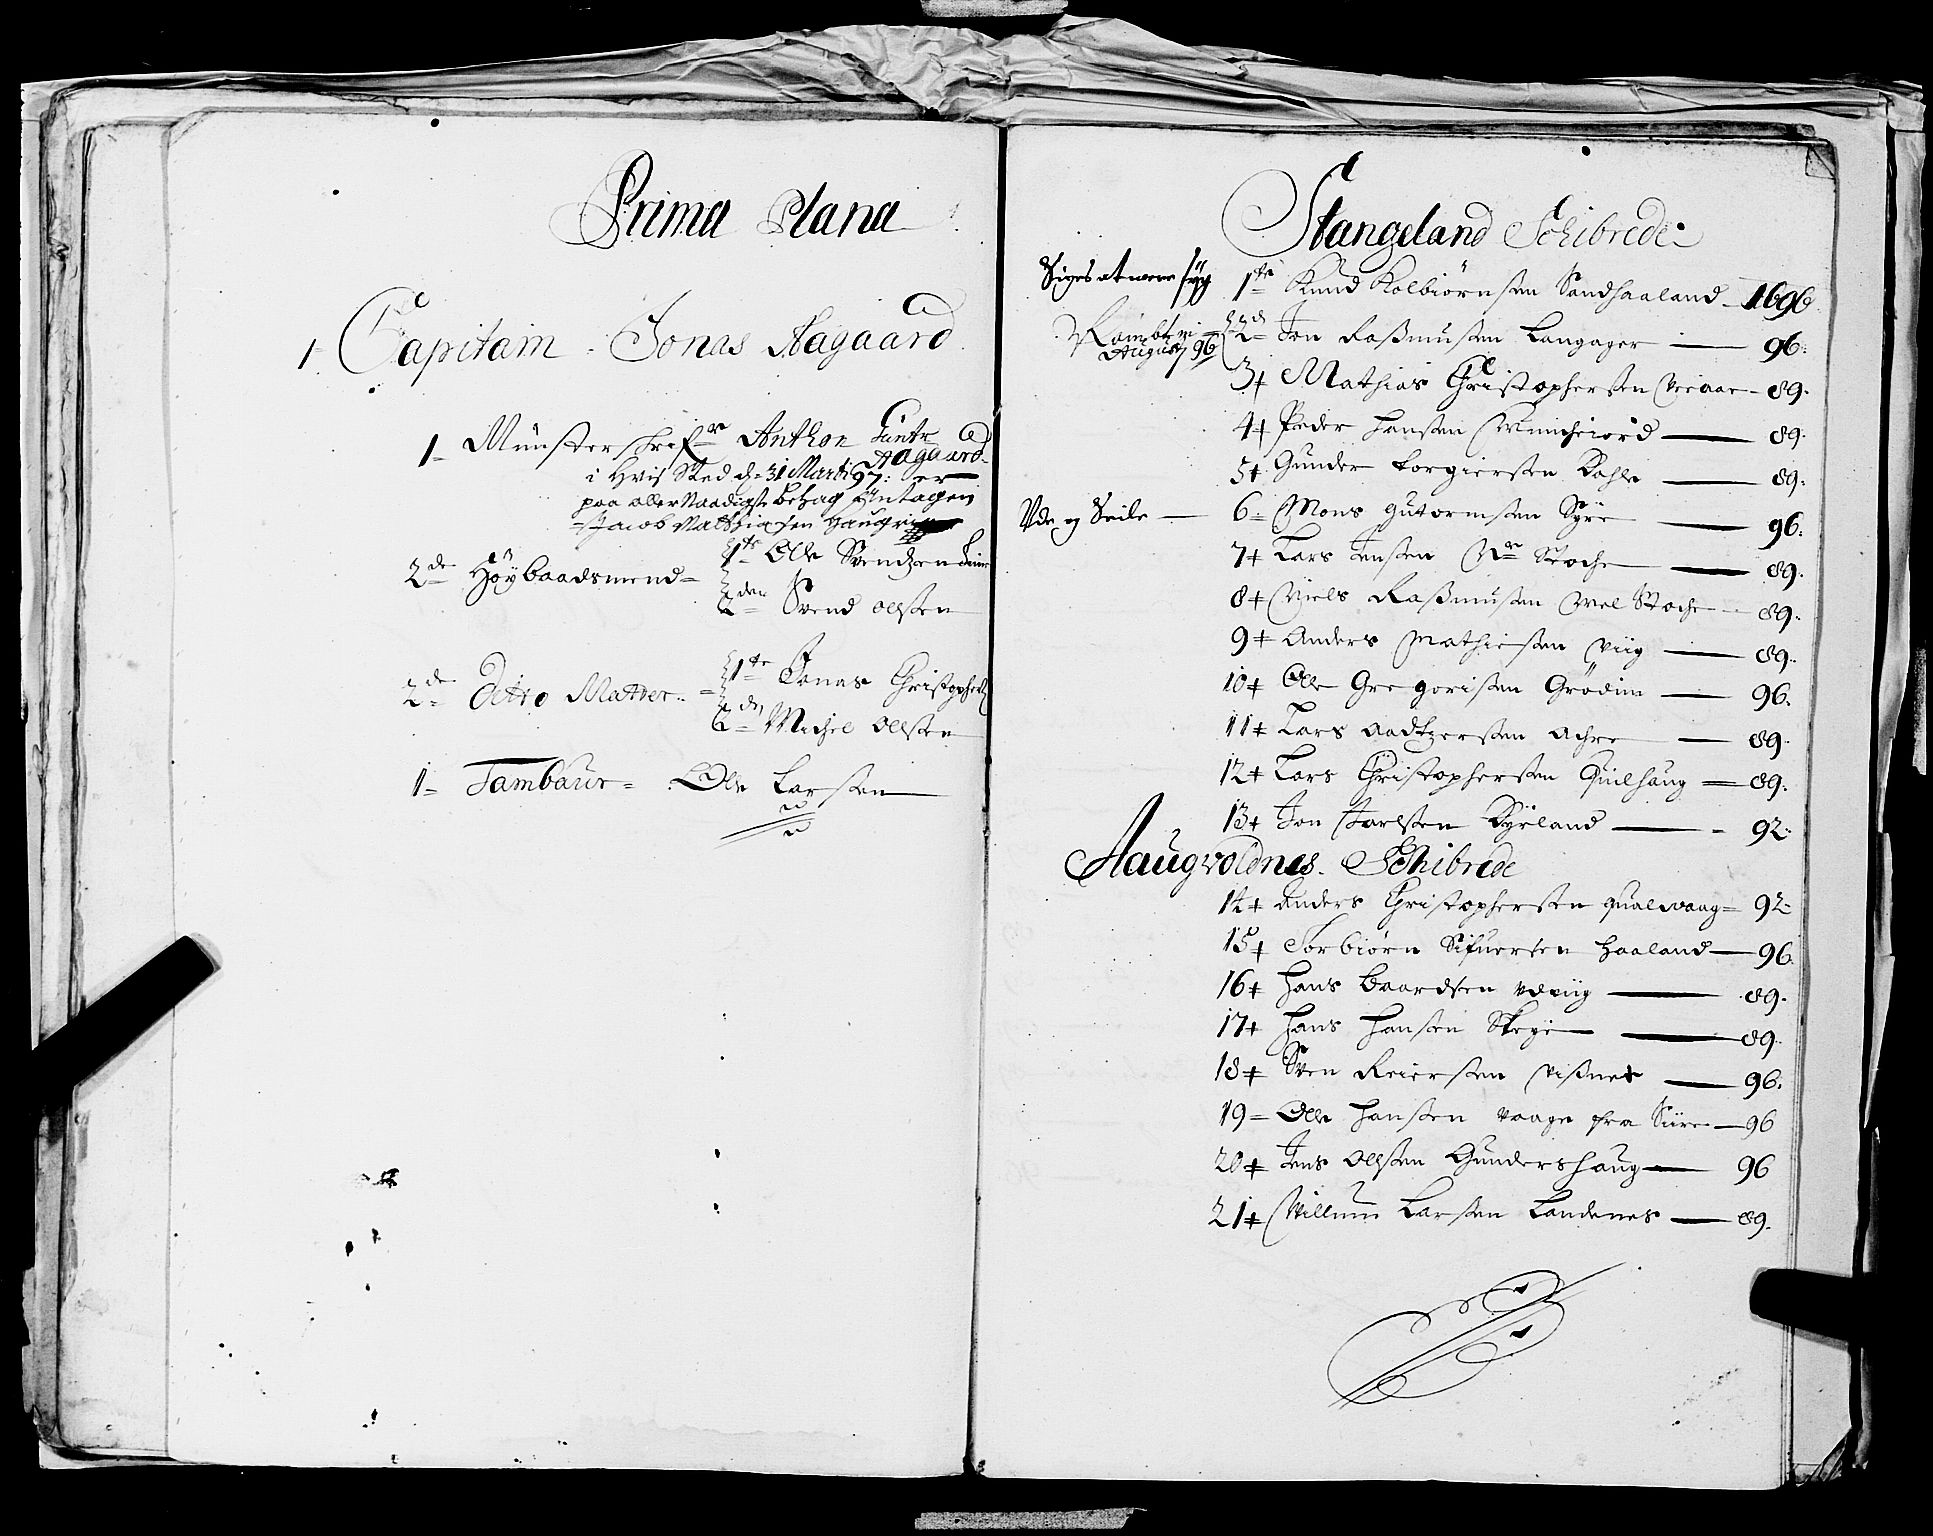 Prima Plana
1 Capitain Jonas Aagaard
1 Münsterschrifr Anthon Güntr Aagaard
i Hvis Sted d. 31 Marti 97: er
paa aller Naadigste behag Antagen
Jacob Mathiasen
2de Höybaadsmend
1te Olle Svendsen
2den Svend Olsen
2de Ditto Matter
1te Jonas Christophers
2den Michel Olsen
1 Tambaur Ole Larsen
Stangeland Schibrede
Siges at være syg 1te Knud Kolbiörnsen Sandhaaland 1696
Augusti 96 2d Jon Rassmusen Langager 96
3 Mathias Christophersen 89
4 Peder Hansen 89
5 Gunder Torgiersen Dahle 89
Ude og Seile 6 Mons Gutormsen Syre 96
7 Lars Jensen Stoche 89
8 Niels Rassmusen Mel Stoche 89
9 Anders Mathiesen Viig 89
10 Olle Gregorisen Grödim 96
11 Lars Aadtzersen Achre 89
12 Lars Christophersen Quilhaug 89
13 Jon Jarlsen Dyrland 92
Aaugvoldnes Schibrede
14 Anders Christophersen Qualvaag 92
15 Torbiörn Sifuersen Haaland 96
16 Hans Baardsen Udviig 89
17 Hans Hansen Skeye 89
18 Sven Reiersen Vissnes 96
19 Olle Hansen Vaage fra Siire 96
20 Jens Olsen Gundershaug 96
21 Villum Larsen Landenes 89